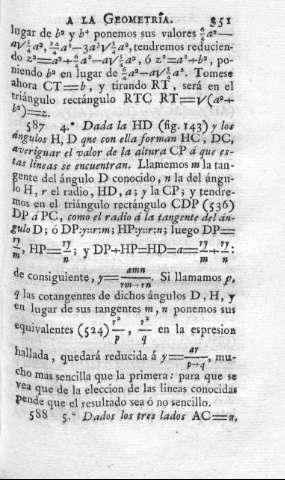 A LA GEOMETRÍA. 351
lugar de b² y b⁴ ponemos sus valores 6/4 a²—
a√5/4 a², 14/4 a⁴—3a³√5/4 a², tendremos reducien-
do z²=a²+6/4 a²—a√5/4 a², ó z²=a²+b², po-
niendo b² en lugar de 6/4 a²—a√5/4 a². Tomese
ahora CT=b, y tirando RT, será en el
triángulo rectángulo RTC RT=√(a²+
b²)=z.
587 4.° Dada la HD (fig. 143) y los
ángulos H, D que con ella forman HC, DC,
averiguar el valor de la altura CP á que es-
tas líneas se encuentran. Llamemos m la tan-
gente del ángulo D conocido, n la del ángu-
lo H, r el radio, HD, a; y la CP; y tendre-
mos en el triángulo rectángulo CDP (536)
DP á PC, como el radio á la tangente del án-
gulo D; ó DP:y::r:m; HP:y::r:n; luego DP=
ry/m, HP=ry/n; y DP+HP=HD=a=ry/m+ry/n:
de consiguiente, y=amn/rm+rn. Si llamamos p,
q las cotangentes de dichos ángulos D, H, y
en lugar de sus tangentes m, n ponemos sus
equivalentes (524) r²/p, r²/q en la espresion
hallada, quedará reducida á y=ar/p+q, mu-
cho mas sencilla que la primera: para que se
vea que de la eleccion de las lineas conocidas
pende que el resultado sea ó no sencillo.
588 5.° Dados los tres lados AC=a,